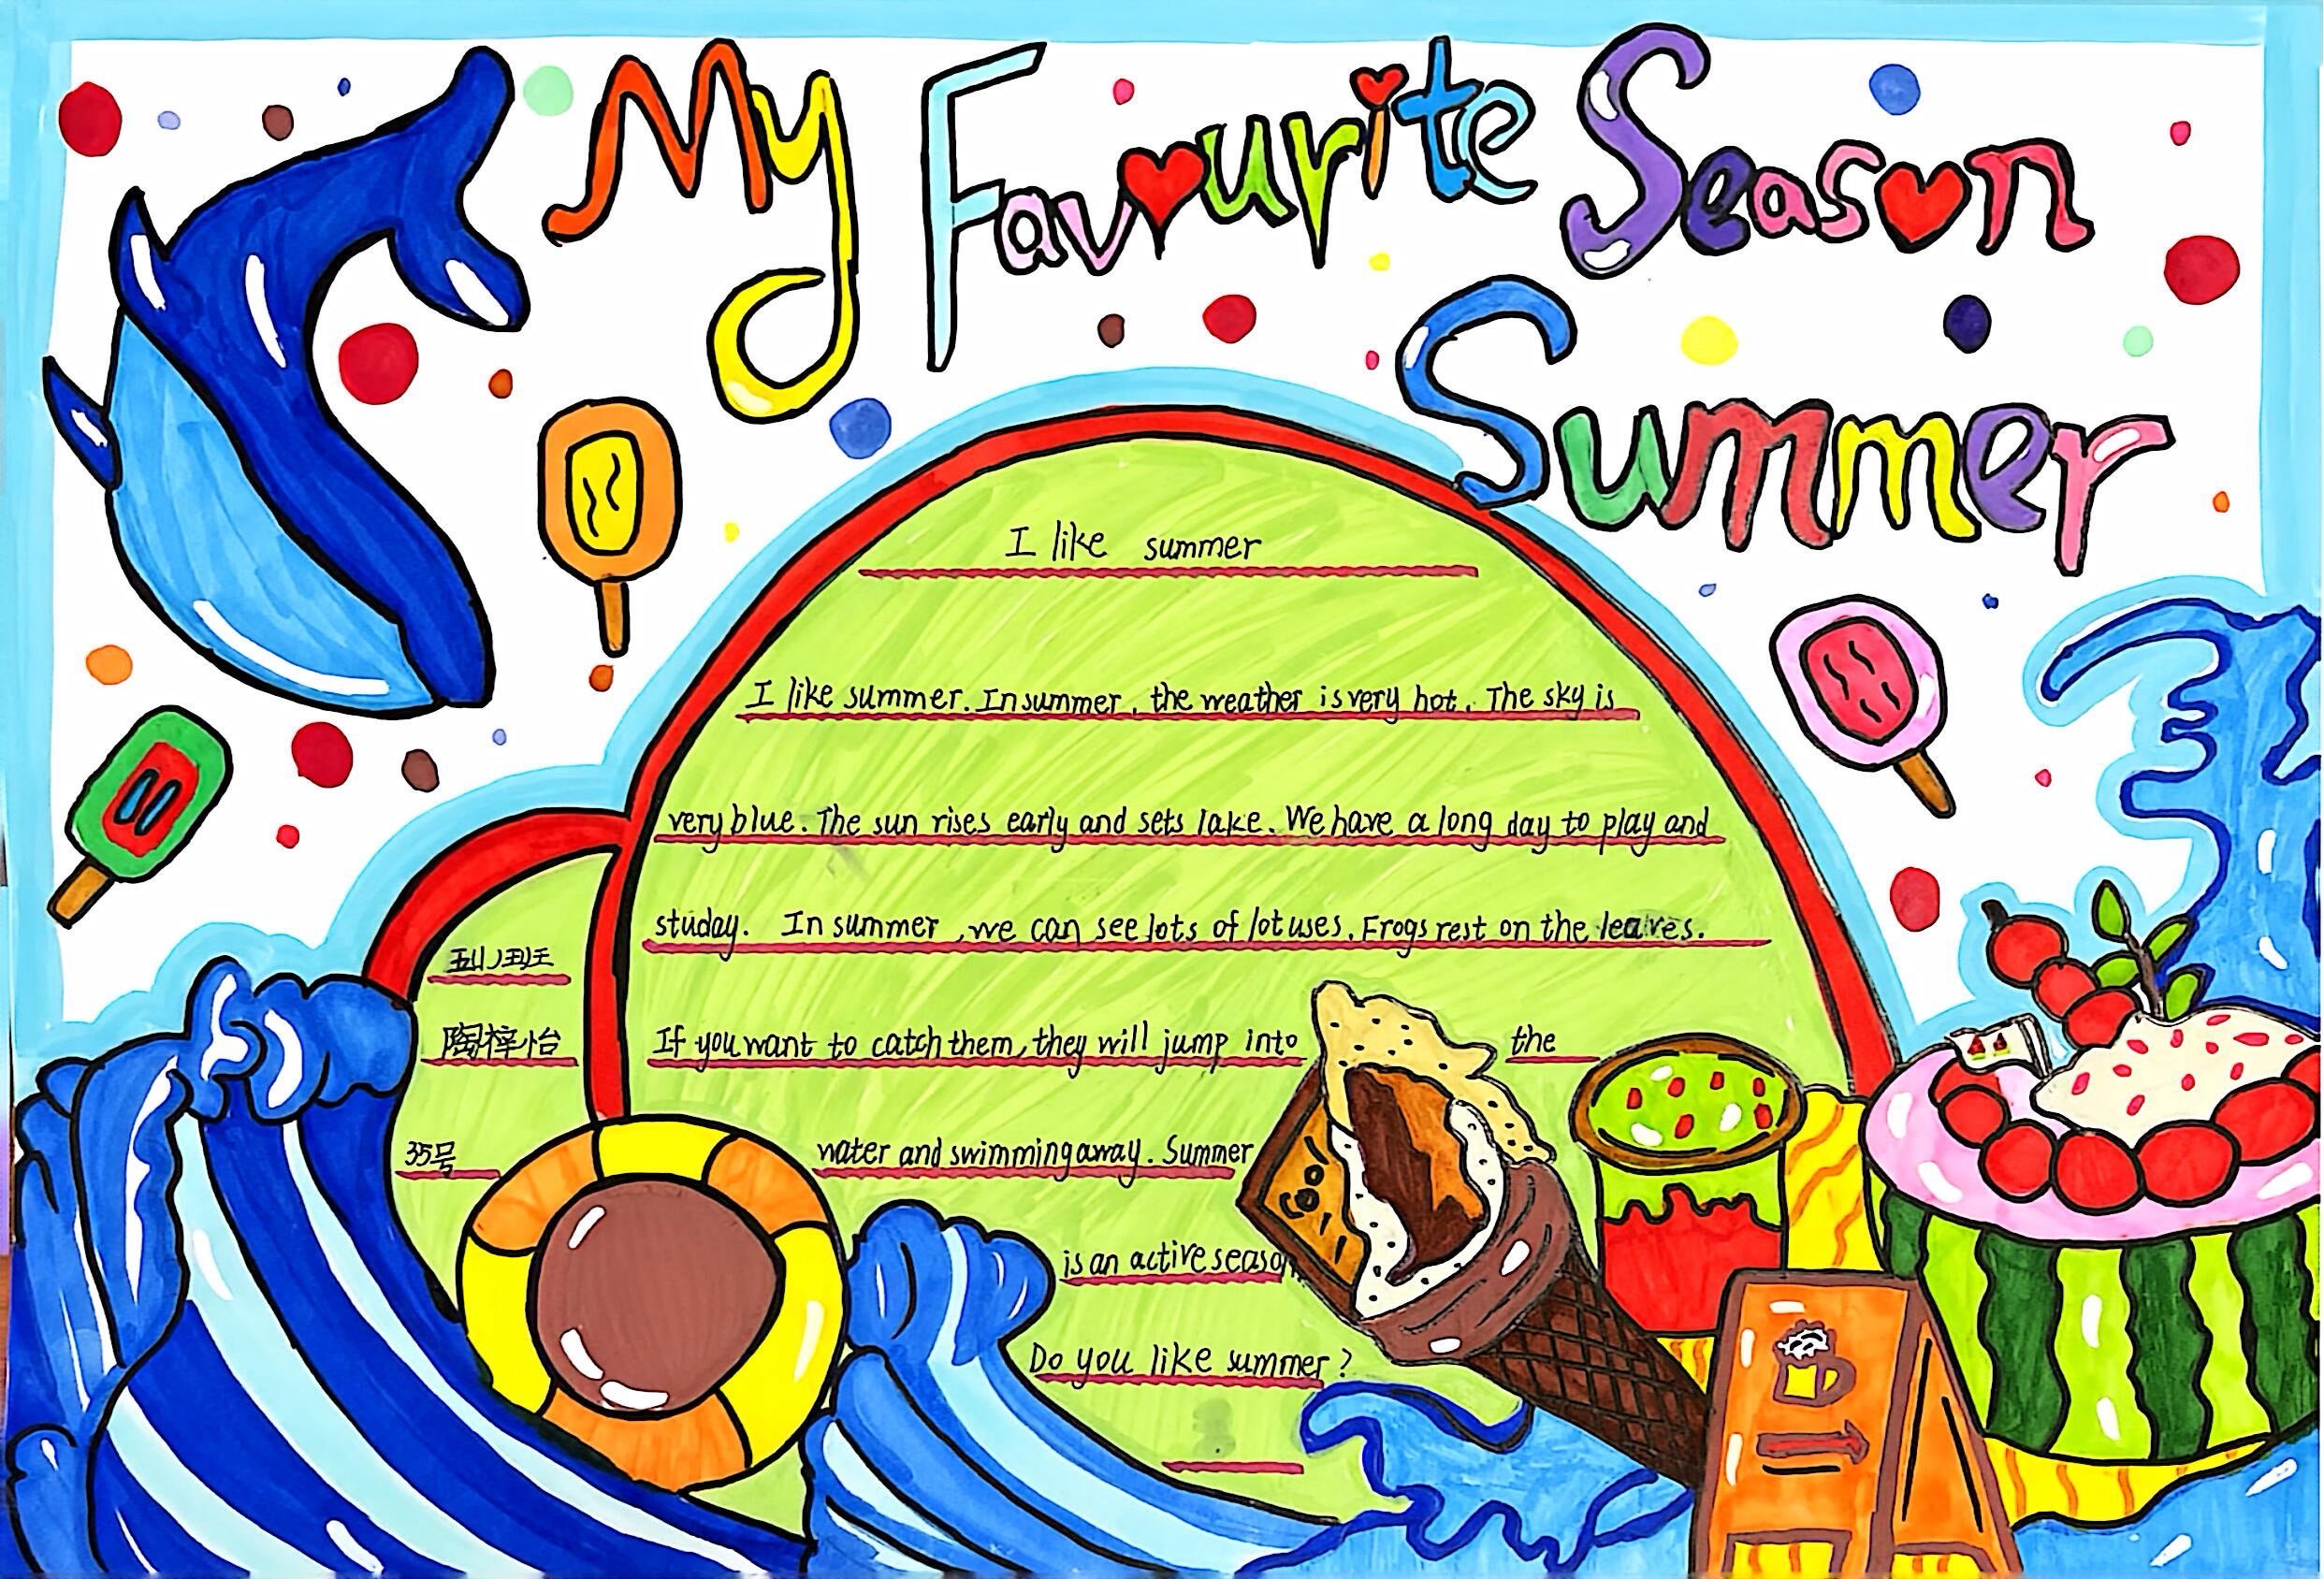 My Favourite Season
Summer
I like summer
I like summer. In summer, the weather is very hot. The sky is
very blue. The sun rises early and sets lake. We have a long day to play and
studay. In summer, we can see lots of lotuses. Frogs rest on the leaves.
If you want to catch them, they will jump into the
water and swimming away. Summer
is an active season
Do you like summer?
陶梓怡
35号